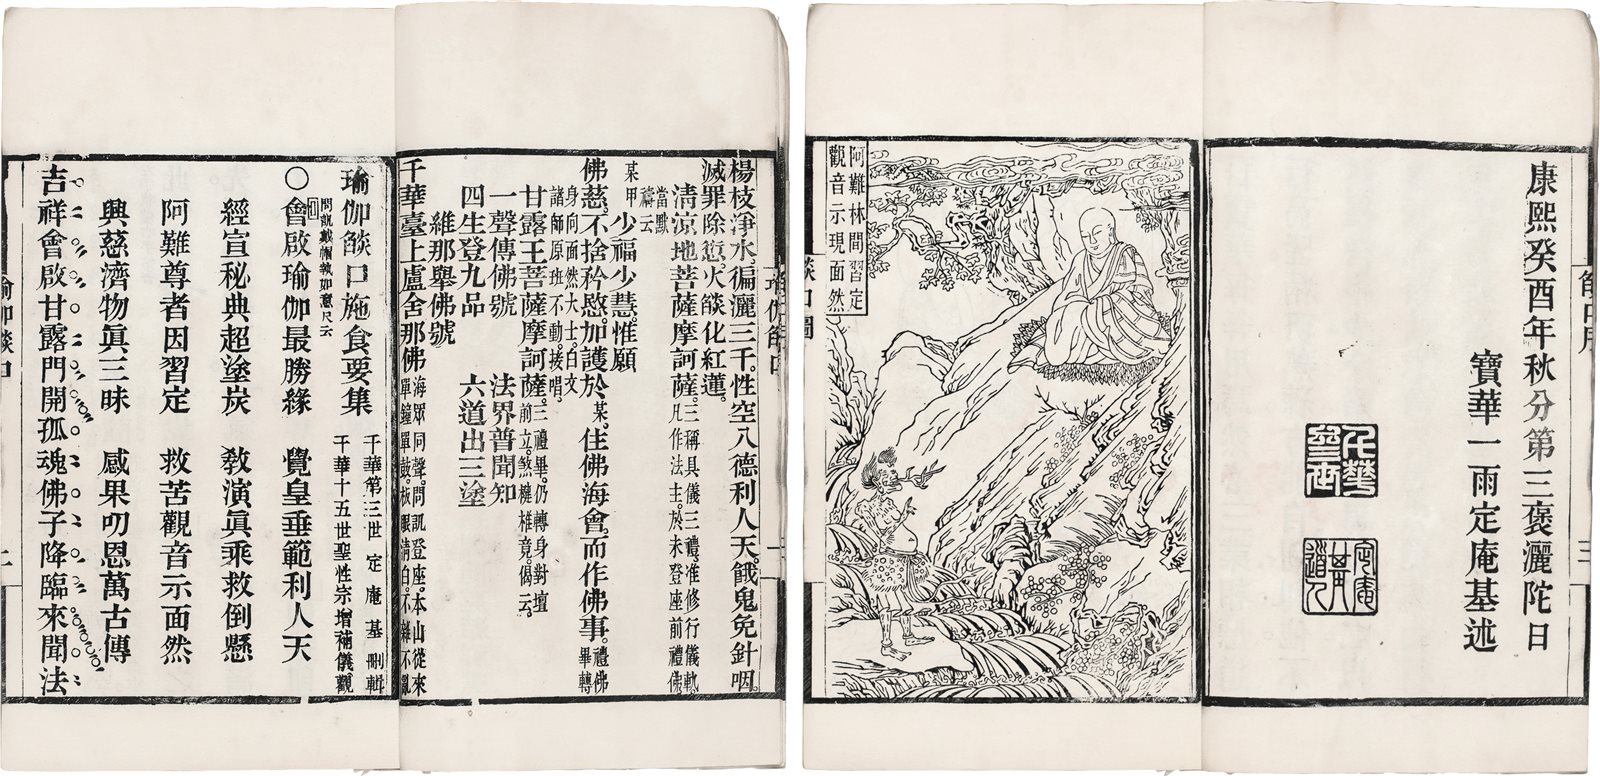 康熙癸酉年秋分第三褒灑陀日
寶華一雨定庵基述
阿難林間習定
觀音示現面然
楊枝淨水。徧灑三千。性空八德利人天。餓鬼免針咽。
滅罪除愆。火燄化紅蓮。
清涼地菩薩摩訶薩。三稱具儀三禮。准修行儀軌
凡作法主。於未登座前禮佛
當默
禱云
某甲 少福少慧。惟願
佛慈。不捨矜愍。加護於某。住佛海會。而作佛事。禮佛
畢轉
身向面然大士。白文
諸師原班不動。接唱。
甘露王菩薩摩訶薩。三禮畢。仍轉身對壇
前立。煞槌椎竟。偈云。
一聲傳佛號 法界普聞知
四生登九品 六道出三塗
維那舉佛號
千華臺上盧舍那佛 海眾同聲。問訊登座。本山從來
單鐘單鼓。板眼清白。不雜不亂
瑜伽燄口施食要集
千華第三世定庵基刪輯
千華十五世聖性宗增補儀觀
問訊戴帽執如意尺云
○會啟瑜伽最勝緣 覺皇垂範利人天
經宣秘典超塗炭 教演真乘救倒懸
阿難尊者因習定 救苦觀音示面然
興慈濟物真三昧 感果叨恩萬古傳
吉祥會啟甘露門開孤魂佛子降臨來聞法